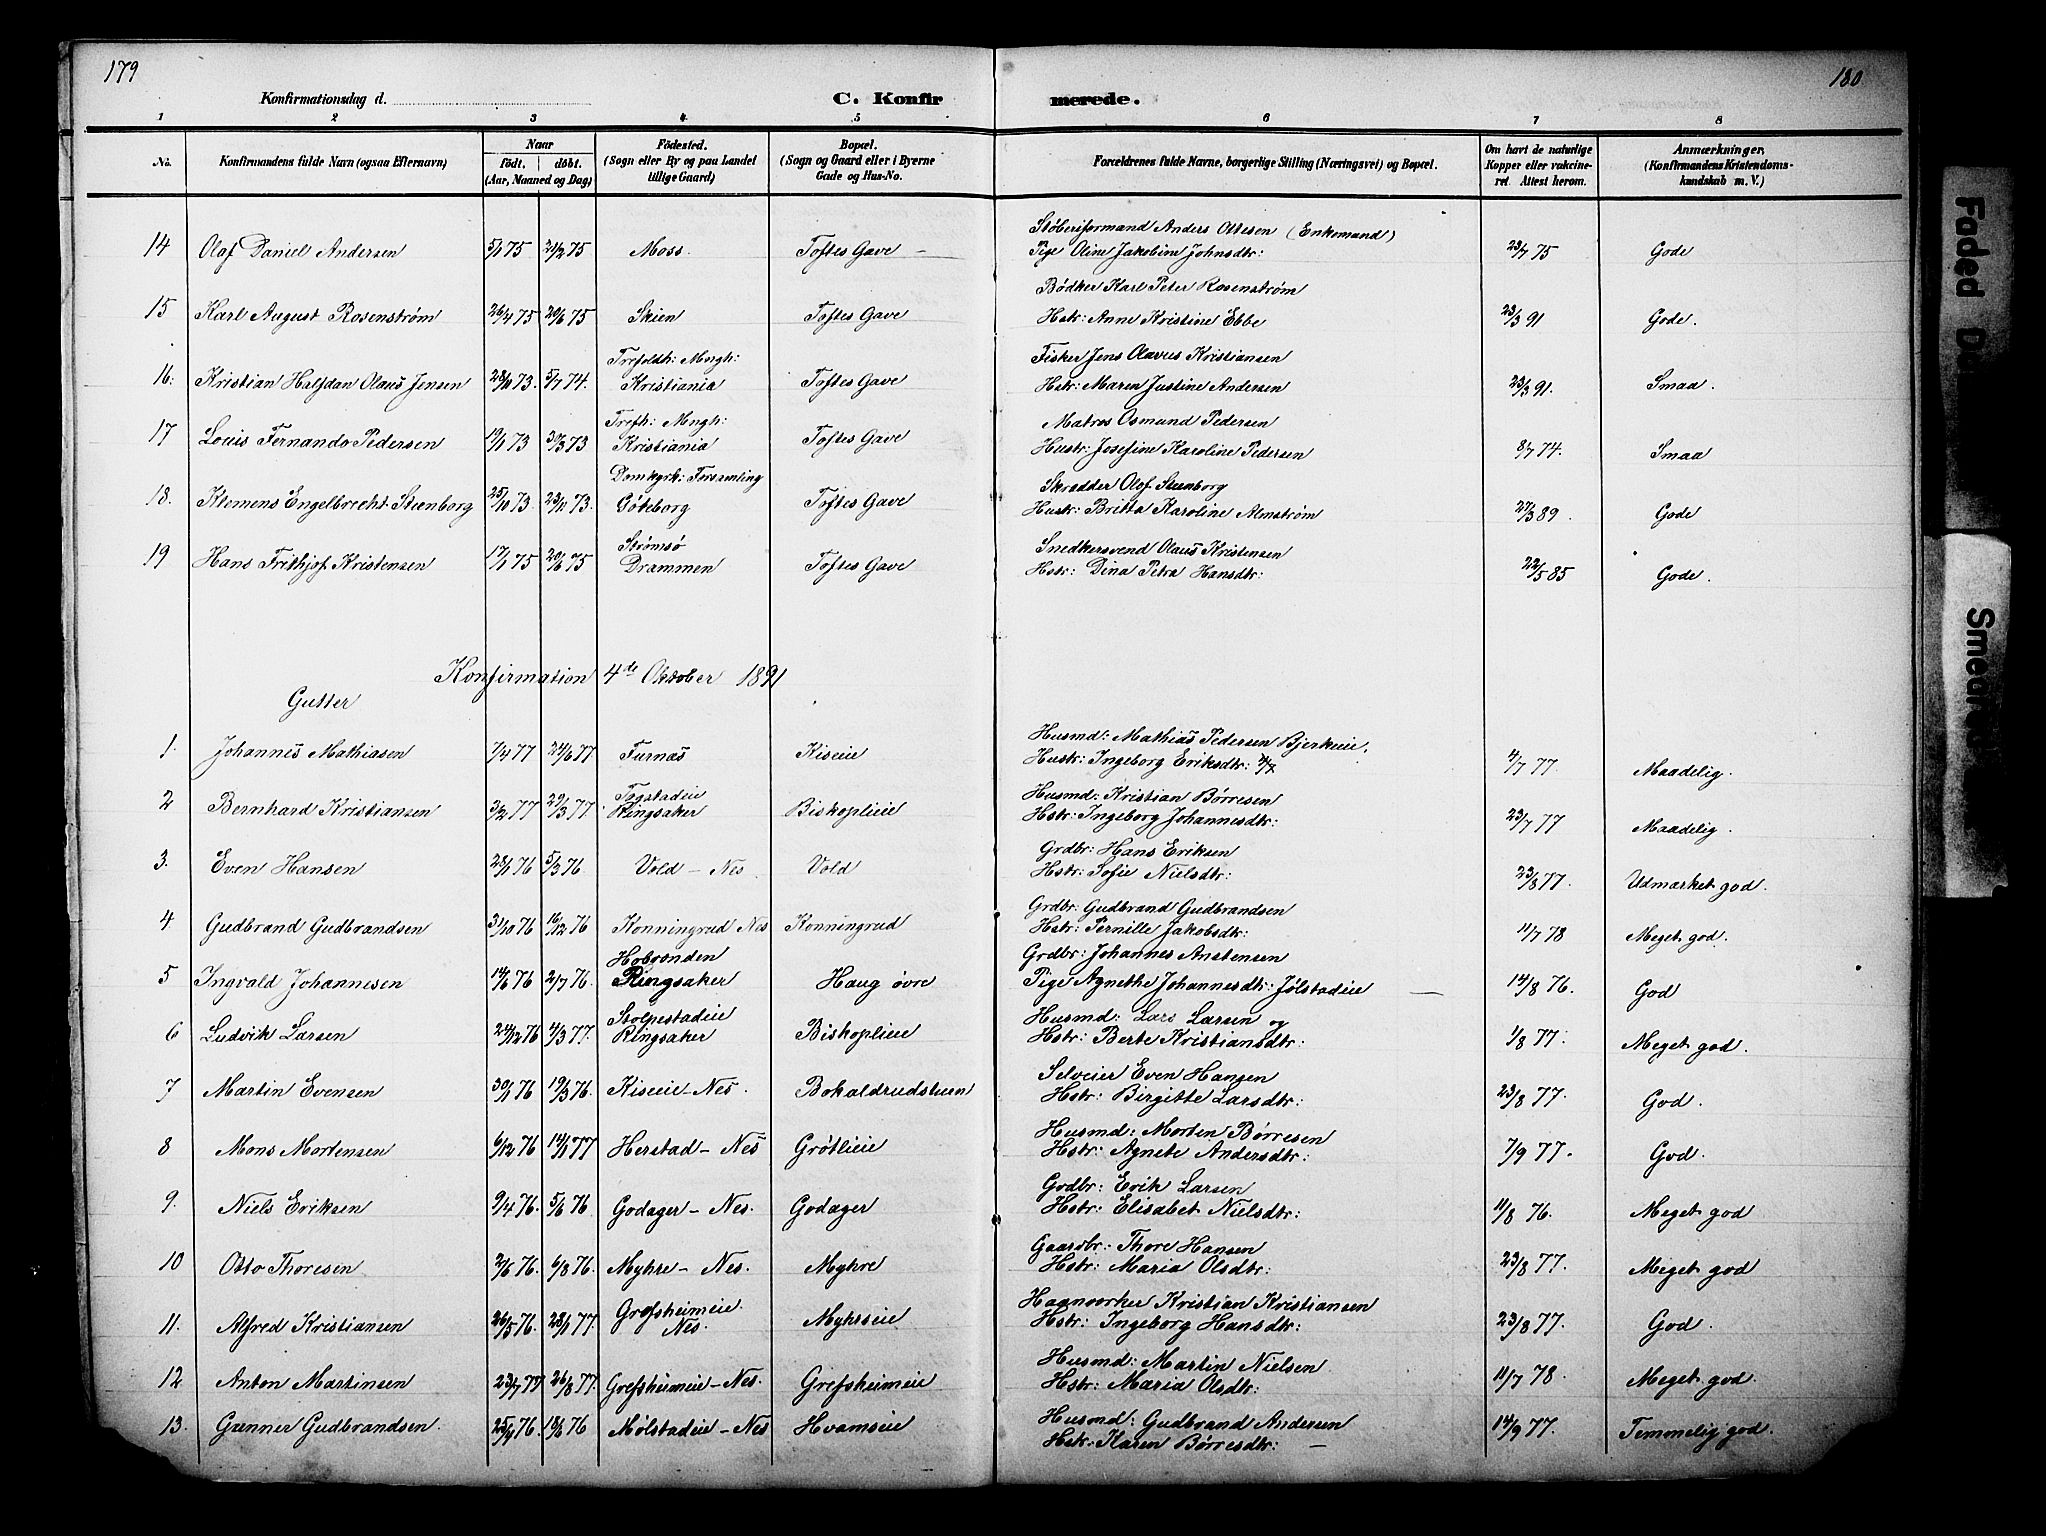 179
180
Konfirmationsdag d.
C. Konfir
merede.
1 2 3 4 5 6 7 8
No. Konfirmandens fulde Navn (ogsaa Efternavn) Naar født, døbt. (Aar, Maaned og Dag) Fødested. (Sogn eller By og paa Landet tillige Gaard) Bopæl. (Sogn og Gaard eller i Byerne Gade og Hus-No. Forældrenes fulde Navne, borgerlige Stilling (Næringsvei) og Bopæl. Om havt de naturlige Kopper eller vakcineret. Attest herom. Anmærkninger. (Konfirmandens Kristendomskundskab m. V.)
Støberiformand Anders Ottesen (Enkemand)
14 Olaf Daniel Andersen 5/1 75 21/2 75 Moss. Toftes Gave — Pige Oline Jakobine Johnsdtr: 23/7 75 Gode
Bødker Karl Peter Rosenstrøm
15 Karl August Rosenstrøm 26/4 75 20/6 75 Skien Toftes Gave Hstr: Anne Kristine Ebbe 23/3 91 Gode.
Trefoldh: Mngh: Fisker Jens Olavus Kristiansen
16. Kristian Halfdan Olaus Jensen 28/10 73. 5/7 74. Kristiania Toftes Gave Hstr: Maren Justine Andersen 23/3 91. Smaa.
Trefh: Mngh: Matros Osmund Pedersen
17 Louis Fernando Pedersen 19/1 73 30/3 73 Kristiania Toftes Gave Hustr: Josefine Karoline Pedersen 8/7 74. Smaa
Domkyrk: Forsamling Skrædder Olof Steenborg
18. Klemens Engelbrecht Steenborg 25/10 73. 23/11 73. Göteborg Toftes Gave Hustr: Britta Karoline Almstrøm 27/3 89. Gode
Strømsø Snedkersvend Olaus Kristensen
19 Hans Frithjof Kristensen 17/1 75 20/6 75 Drammen Toftes Gave Hstr: Dina Petra Hansdtr: 22/5 85 Gode.
Konfirmation 4de Oktober 1891
Gutter
Husmd: Mathias Pedersen Bjerkeie.
1. Johannes Mathiasen 7/4 77 24/6 77 Furnæs Kiseie Hustr: Ingeborg Eriksdtr: 4/7 77 Maadelig.
Togstadeie Husmd: Kristian Børresen
2 Bernhard Kristiansen 3/2 77 29/3 77. Ringsaker Biskoplieie Hstr: Ingeborg Johannesdtr: 23/7 77 Maadelig.
Grdbr: Hans Eriksen
3. Even Hansen 28/1 76 5/3 76 Vold – Nes. Vold Hstr: Sofie Nielsdtr: 23/8 77. Udmærket god.
Grdbr: Gudbrand Gudbrandsen
4 Gudbrand Gudbrandsen 31/10 76 16/12 76 Konningrud Nes Konningrud Hstr: Pernille Jakobsdtr: 11/7 78 Meget god.
Grdbr: Johannes Anstensen
5 Ingvald Johannesen 14/6 76 2/7 76. Ringsaker Haug øvre Pige Agnethe Johannesdtr: Jølstadeie — 14/8 76. God
Stolpestadeie Husmd: Lars Larsen og
6 Ludvik Larsen 24/12 76 4/3 77. Ringsaker Biskoplieie Hstr: Berte Kristiansdtr: 1/8 77. Meget god.
Selveier Even Hansen
7 Martin Evensen 30/1 76 19/3 76. Kiseie – Nes. Bokaldrudstuen Hstr: Birgitte Larsdtr: 23/8 77. God.
Husmd: Morten Børresen
8 Mons Mortensen 6/12 76 14/1 77 Herstad – Nes Grøtlieie Hstr: Agnete Andersdtr: 7/9 77. God.
Grdbr: Erik Larsen
9. Niels Eriksen 9/4 76. 5/6 76 Godager – Nes. Godager Hstr: Elisabet Nielsdtr: 11/8 76. Meget god
Gaardbr: Thore Hansen
10 Otto Thoresen 2/6 76. 6/8 76. Myhre – Nes. Myhre Hstr: Maria Olsdtr: 23/8 77. Meget god
Grefsheimeie. Haandverker Kristian Kristiansen
11. Alfred Kristiansen 26/5 76. 28/1 77. Nes. Myhrseie Hstr: Ingeborg Hansdtr: 23/8 77. God.
Husmd: Martin Nielsen
12 Anton Martinsen 23/7 77 26/8 77. Grefsheimeie – Nes. Grefsheimeie Hstr: Maria Olsdtr: 11/7 78. Meget god.
Husmd: Gudbrand Andersen
13. Gunner Gudbrandsen. 25/4 76. 18/6 76 Mølstadeie – Nes Hvamseie Hstr: Karen Børresdtr: — 14/9 77. Temmelig god.
Faded